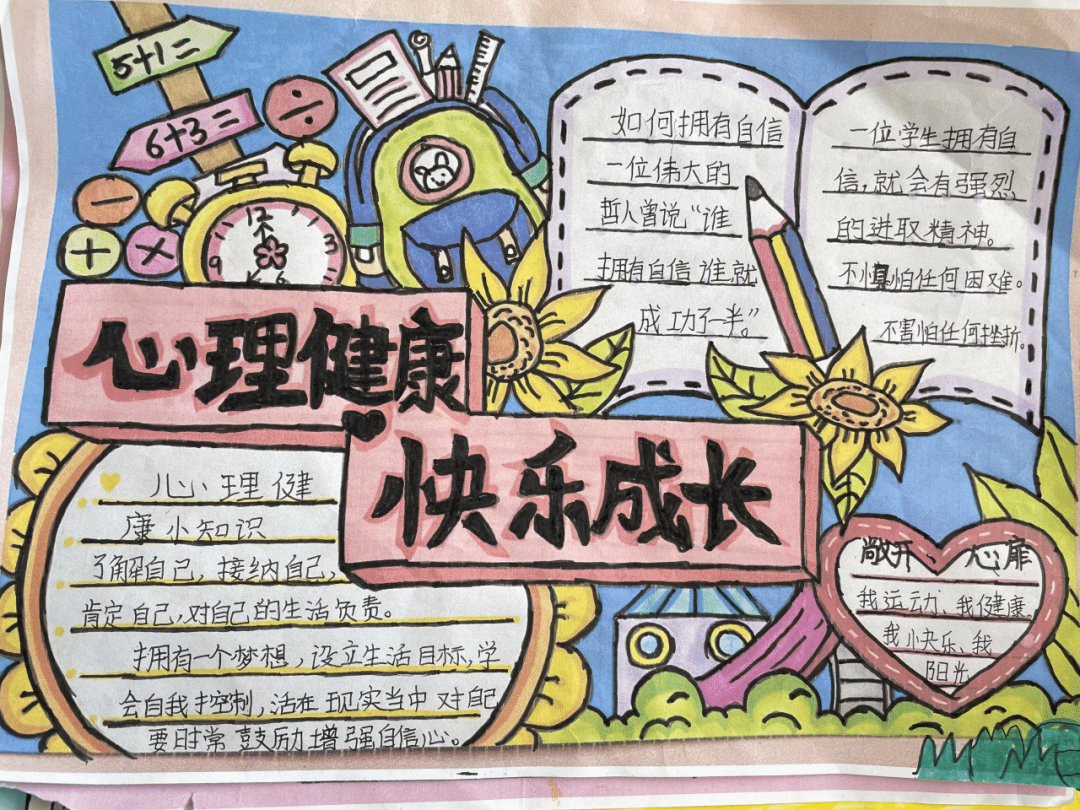 5+1=
6+3=
÷
−
+
×
12
3
9
6
如何拥有自信
一位伟大的
哲人曾说“谁
拥有自信谁就
成功了一半。”
一位学生拥有自
信,就会有强烈
的进取精神。
不惧怕任何困难。
不害怕任何挫折。
心理健康
快乐成长
心理健
康小知识
了解自己,接纳自己,
肯定自己,对自己的生活负责。
拥有一个梦想,设立生活目标,学
会自我控制,活在现实当中对自己
要时常鼓励增强自信心。
敞开、心扉
我运动、我健康。
我快乐、我
阳光